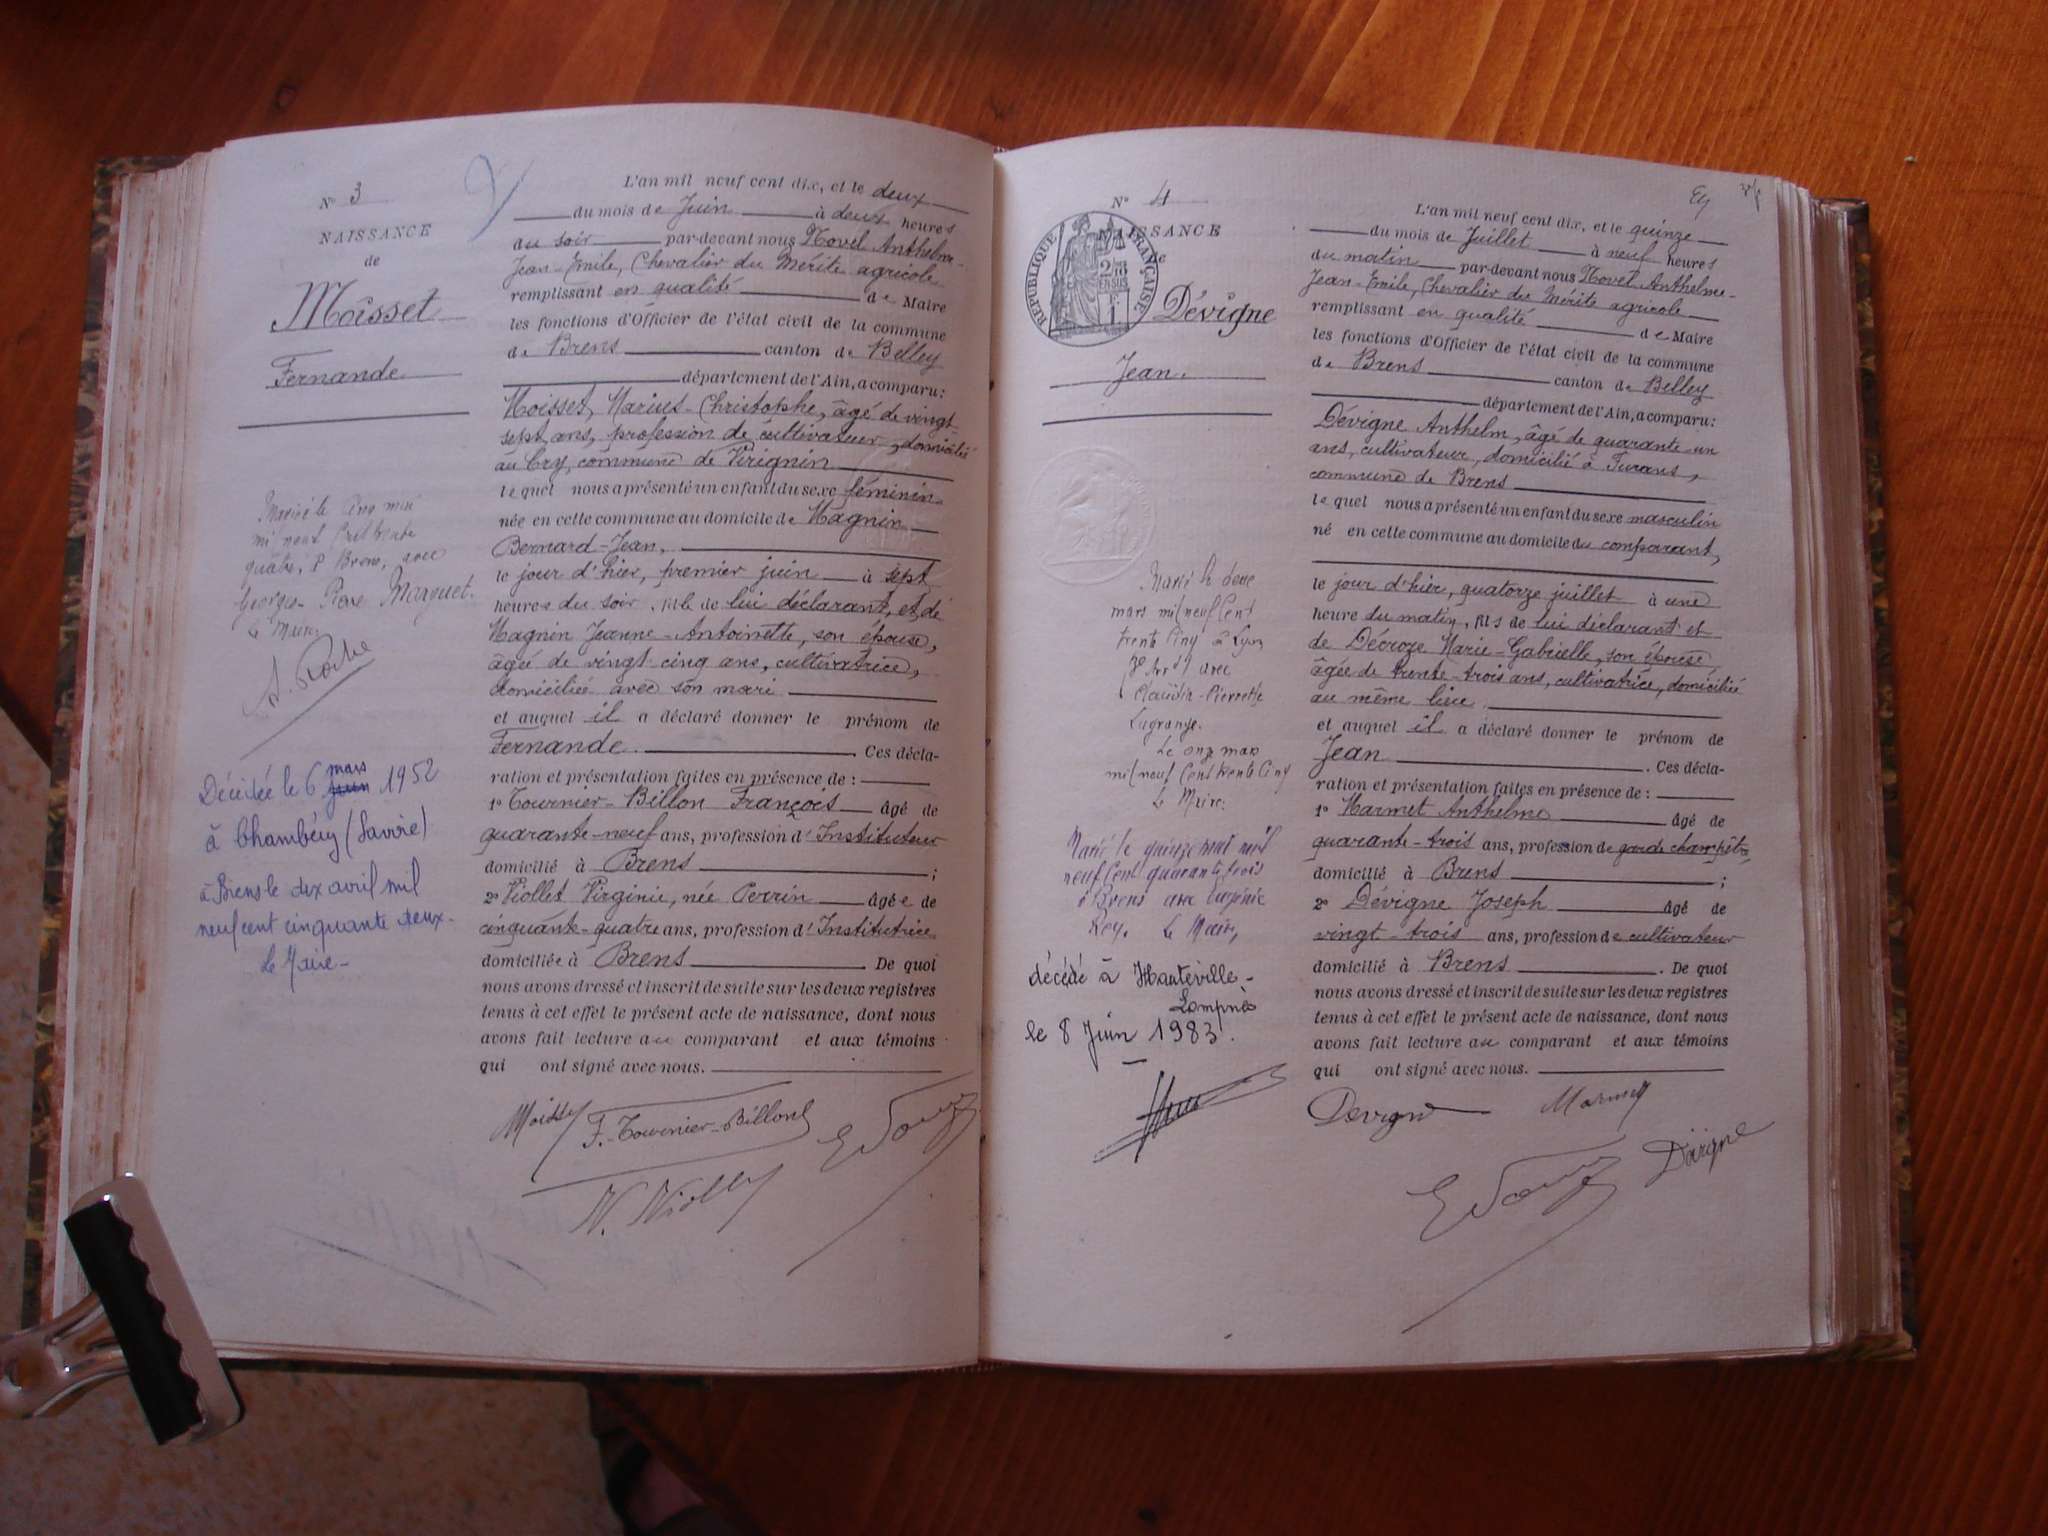 N° 3
NAISSANCE
de
Moisset
Fernande
Marié le cinq mai
mil neuf cent trente
quatre, à Brens, avec
Georges-Pierre Marquet.
Le Maire,
A. Roche
Décédée le 6 mars juin 1952
à Chambéry (Savoie)
à Brens le dix avril mil
neuf cent cinquante deux-
Le Maire-
L'an mil neuf cent dix, et le deux
du mois de Juin à deux heures
du soir par-devant nous Novel Anthelme-
Jean-Emile, Chevalier du Mérite agricole
remplissant en qualité de Maire
les fonctions d'Officier de l'état civil de la commune
de Brens canton de Belley
département de l'Ain, a comparu:
Moisset, Marius-Christophe, âgé de vingt
sept ans, profession de cultivateur, domicilié
au Cry, commune de Virignin
le quel nous a présenté un enfant du sexe féminin
née en cette commune au domicile de Magnin
Bernard-Jean,
le jour d'hier, premier juin à sept
heures du soir, fille de lui déclarant, et de
Magnin Jeanne-Antoinette, son épouse,
âgée de vingt cinq ans, cultivatrice,
domiciliée avec son mari
et auquel il a déclaré donner le prénom de
Fernande. Ces décla-
ration et présentation faites en présence de :
1° Tournier-Billon François âgé de
quarante-neuf ans, profession d'Instituteur
domicilié à Brens ;
2° Viollet Virginie, née Perrin âgée de
cinquante-quatre ans, profession d'Institutrice
domiciliée à Brens. De quoi
nous avons dressé et inscrit de suite sur les deux registres
tenus à cet effet le présent acte de naissance, dont nous
avons fait lecture au comparant et aux témoins
qui ont signé avec nous.
Moisset F. Tournier-Billon
V. Viollet
N° 4
NAISSANCE
de
RÉPUBLIQUE FRANÇAISE
2/10 EN SUS
Dévigne
Jean.
Marié le deux
mars mil neuf cent
trente cinq à Lyon
3e arrdt avec
Claudia-Pierrette
Lagrange.
Le onze mars
mil neuf cent trente cinq
Le Maire:
Marié le quinze mil
neuf cent quarante trois
à Brens avec Eugénie
Rey. Le Maire,
décédé à Hauteville-
Lompnès
le 8 Juin 1983.
L'an mil neuf cent dix, et le quinze
du mois de Juillet à neuf heures
du matin par-devant nous Novel Anthelme-
Jean-Emile, Chevalier du Mérite agricole
remplissant en qualité de Maire
les fonctions d'Officier de l'état civil de la commune
de Brens canton de Belley
département de l'Ain, a comparu:
Dévigne Anthelm, âgé de quarante-un
ans, cultivateur, domicilié à Furans,
commune de Brens
le quel nous a présenté un enfant du sexe masculin
né en cette commune au domicile du comparant,
le jour d'hier, quatorze juillet à une
heure du matin, fils de lui déclarant et
de Décroze Marie-Gabrielle, son épouse,
âgée de trente-trois ans, cultivatrice, domiciliée
au même lieu.
et auquel il a déclaré donner le prénom de
Jean. Ces décla-
ration et présentation faites en présence de :
1° Marmet Anthelme âgé de
quarante-trois ans, profession de garde champêtre
domicilié à Brens ;
2° Dévigne Joseph âgé de
vingt-trois ans, profession de cultivateur
domicilié à Brens. De quoi
nous avons dressé et inscrit de suite sur les deux registres
tenus à cet effet le présent acte de naissance, dont nous
avons fait lecture au comparant et aux témoins
qui ont signé avec nous.
Devigne Marmet
Dévigne